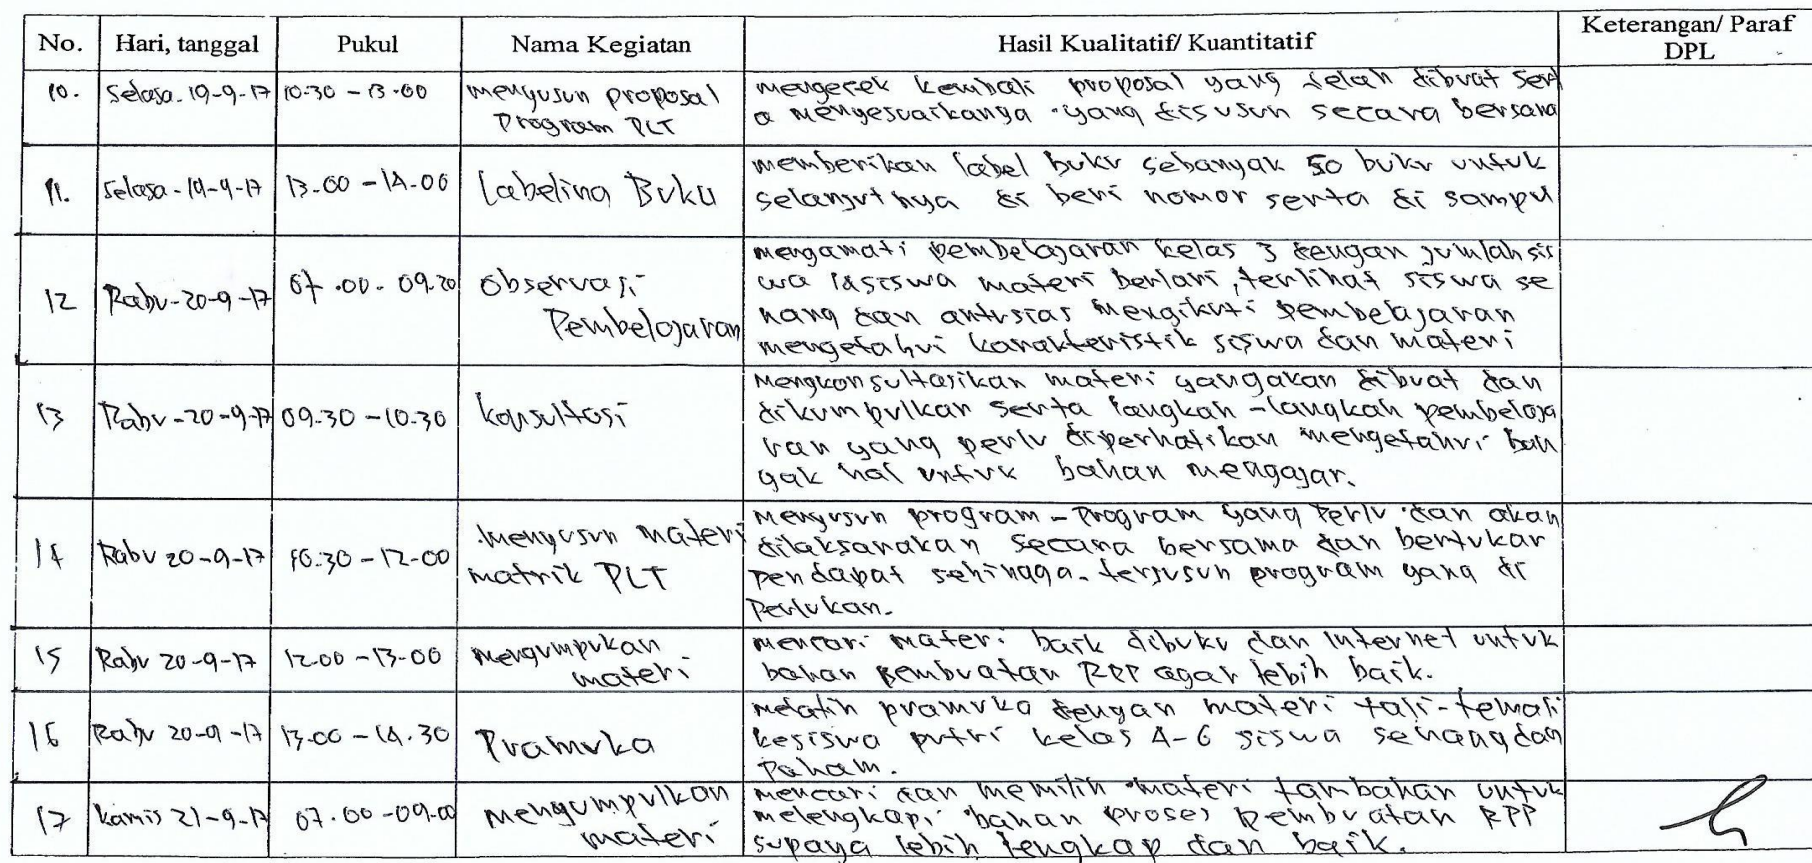 No. Hari, tanggal Pukul Nama Kegiatan Hasil Kualitatif/ Kuantitatif Keterangan/ Paraf DPL
10. Selasa-19-9-17 10.30 - 13.00 menyusun proposal Program PLT
mengecek kembali proposal yang telah dibuat sert
a menyesuaikanya yang disusun secara bersama
11. Selasa-19-9-17 13.00 - 14.00 Labeling Buku
memberikan label Buku sebanyak 50 buku untuk
selanjutnya di beri nomor serta di sampul
12 Rabu-20-9-17 07.00 - 09.20 Observasi Pembelajaran
mengamati pembelajaran kelas 3 dengan jumlah sis
wa siswa materi berlari, terlihat siswa se
nang dan antusias mengikuti pembelajaran
mengetahui karakteristik siswa dan materi
13 Rabu-20-9-17 09.30 - 10.30 konsultasi
Mengkonsultasikan materi yang akan dibuat dan
dikumpulkan serta langkah - langkah pembelaja
ran yang perlu diperhatikan mengetahui ban
yak hal untuk bahan mengajar.
14 Rabu 20-9-17 10.30 - 12.00 menyusun materi matrik PLT
Menyusun program - Program yang Perlu dan akan
dilaksanakan secara bersama dan bertukar
pendapat sehingga tersusun program yang di
Perlukan.
15 Rabu 20-9-17 12.00 - 13.00 mengumpukan materi
mencari materi baik dibuku dan Internet untuk
bahan pembuatan RPP agar lebih baik.
16 Rabu 20-9-17 13.00 - 14.30 Pramuka
melatih pramuka dengan materi tali-temali
kesiswa putri kelas 4-6 siswa senang dan
Paham.
17 Kamis 21-9-17 07.00 - 09.00 Mengumpulkan materi
mencari dan memilih materi tambahan untuk
melengkapi bahan proses pembuatan RPP
supaya lebih lengkap dan baik.